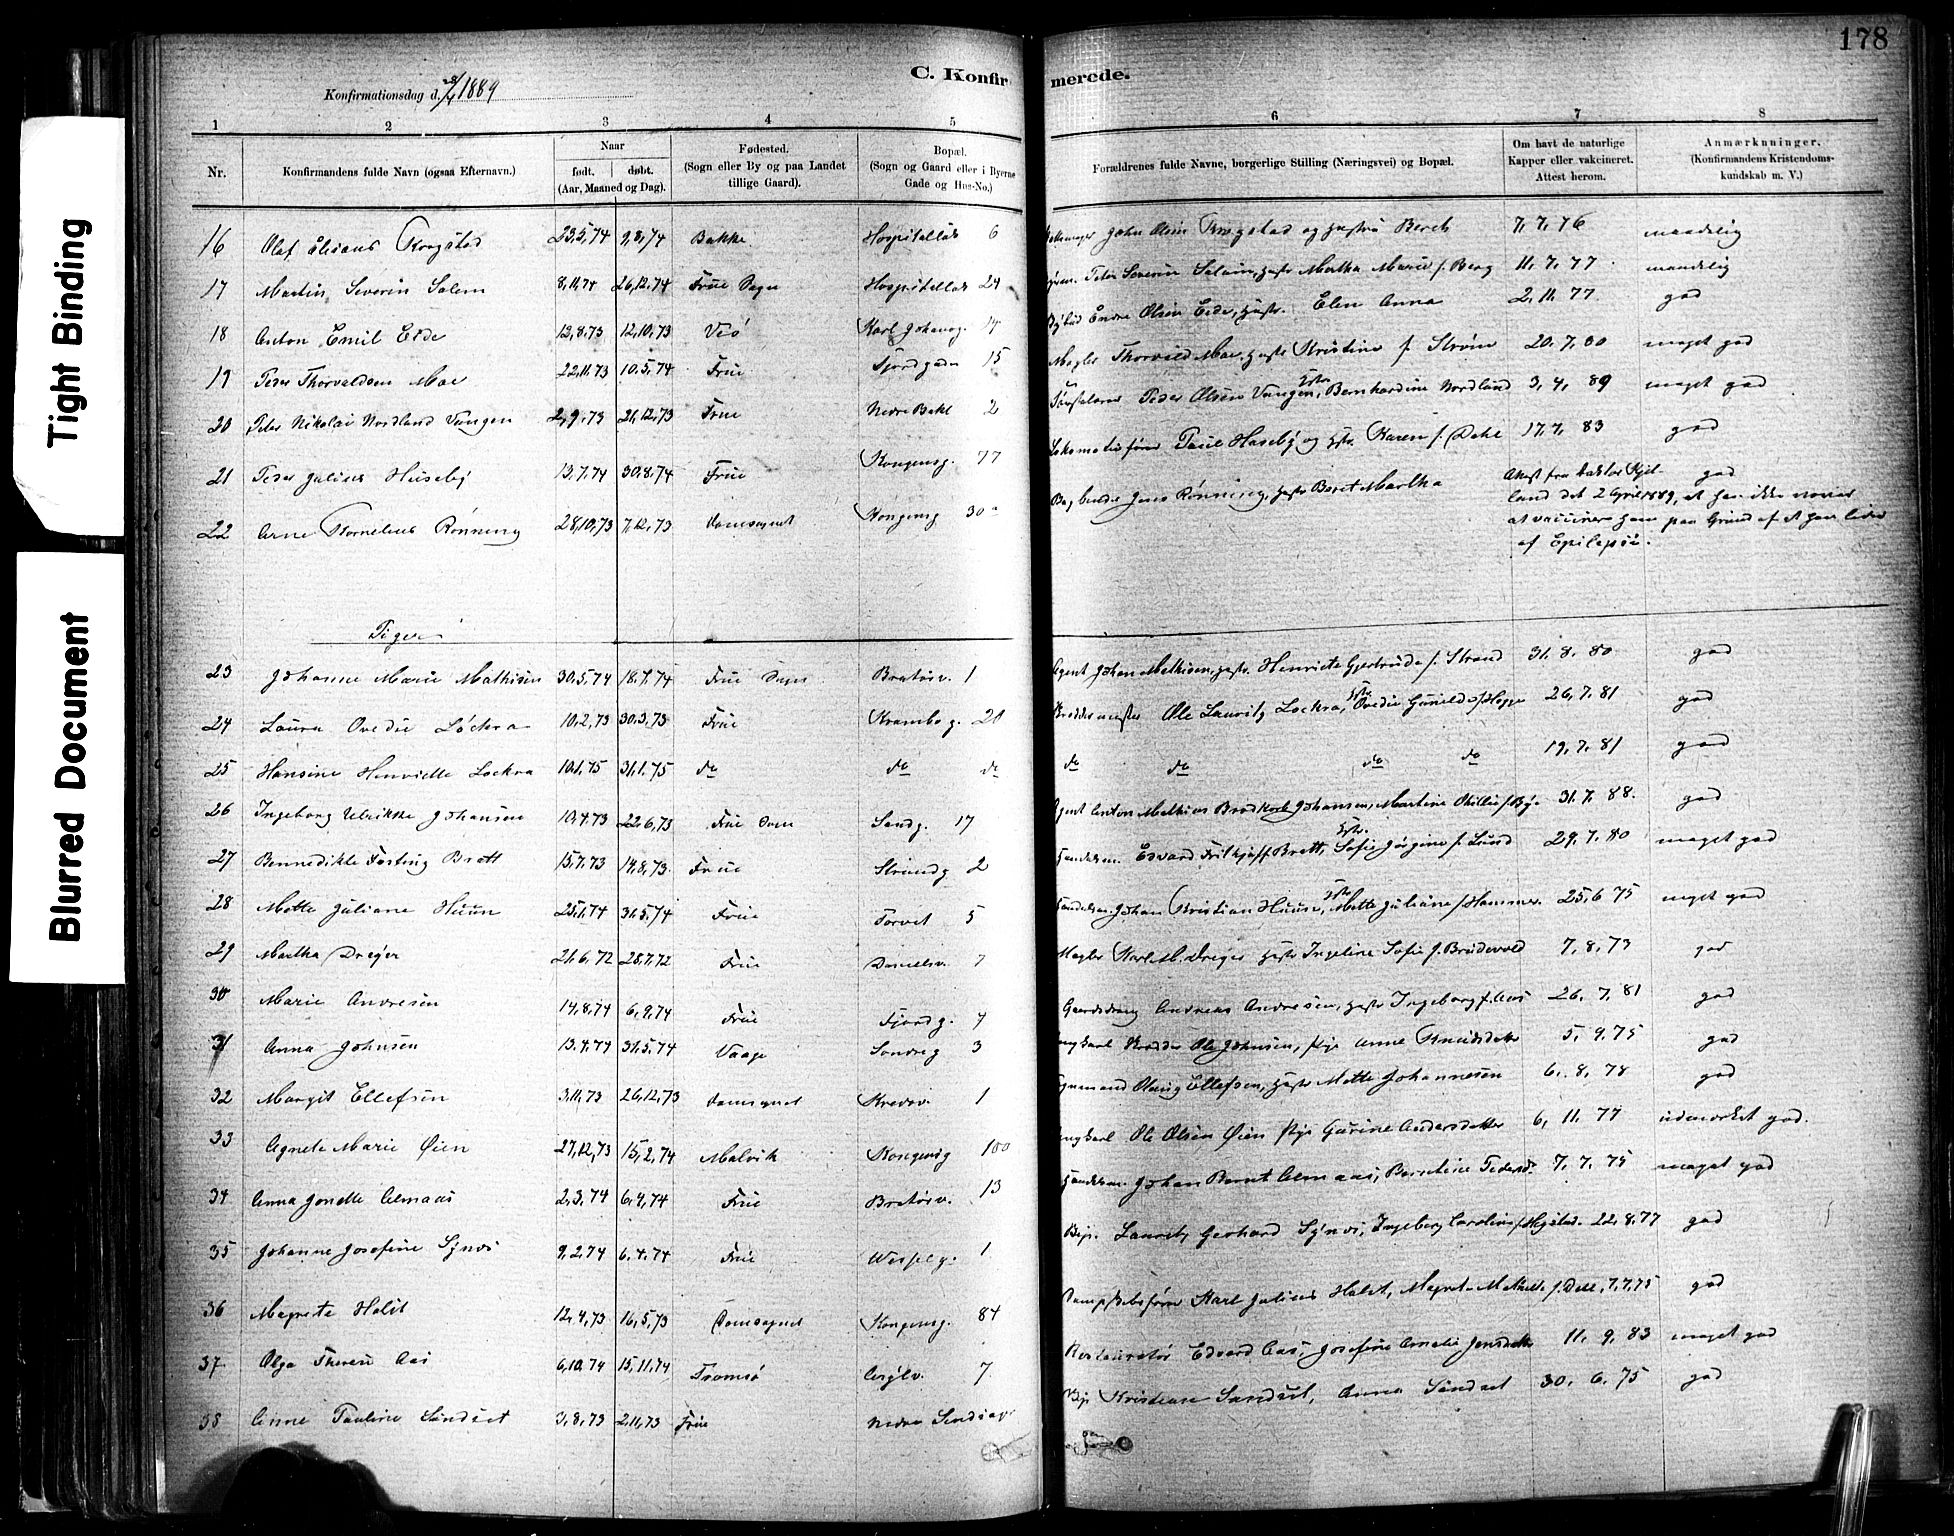 178
C. Konfirmerede.
Konfirmationsdag d. 28/4 1889
1 2 3 4 5 6 7 8
Nr.
Konfirmandens fulde Navn (ogsaa Efternavn.)
Naar
født. døbt.
(Aar, Maaned og Dag).
Fødested.
(Sogn eller By og paa Landet
tillige Gaard).
Bopæl.
(Sogn og Gaard eller i Byerne
Gade og Hus-No.)
Forældrenes fulde Navne, borgerlige Stilling (Næringsvei) og Bopæl.
Om havt de naturlige
Kopper eller vakcineret.
Attest herom.
Anmærkninger.
(Konfirmandens Kristendoms-
kundskab m. V.)
16 Olaf Elisæus Krogstad 23,5,74 9,8,74 Bakke Hospitalløk 6 John Olsen Krogstad og Berch 7,7,76 maadelig
17 Martin Severin Salem 8,11,74 26,12,74 Frue Sogn Hospitalløk 24 Peter Severin Salem, hustr Martha Marie f. Berg 11,7,77 maadelig
18 Anton Emil Eide 12,8,73 12,10,73 Veø Karl Johansg. 14 Endre Olsen Eide, hustr. Elen Anna 2,11,77 god
19 Peder Thorvaldsen Moe 22,11,73 10,5,74 Frue Fjordgaden 15 Mægler Thorvald Moe, hustr Kristine f. Strøm 20,7,80 meget god
20 Peter Nikolai Nordland Vangen 2,9,73 21,12,73 Frue Nedre Bakl 2 Peder Olsen Vangen, hstr. Bernhardine Nordland 3,4,89 meget god
21 Peder Julius Huseby 13,7,74 30,8,74 Frue Kongensg. 77 Lokomotivfører Paul Huseby og hstr. Karen f. Dahl 17,7,83 god
22 Arne Kornelius Rønning 28,10,73 7,12,73 Domsognet Kongensg 30a Jens Rønning, hustr Beret Martha Attest fra Doktor Kjel- god
land det 2 April 1889, at han ikke
at vaccinere ham paa Grund af at han lider
af Epilepsi.
Piger
23 Johanne Marie Mathisen 30,5,74 18,7,74 Frue Sogn Bratørv. 1 Agent Johan Mathisen, hustr. Henriette Gjertrude f. Strand 31,8,80 god
24 Laura Ovedie Løckra 10,2,73 30,3,73 Frue Krambog. 20 Ole Lauritz Lockra, hstr. Ovedie Gunilde f. Hogge 26,7,81 god
25 Hansine Henriette Lockra 10,1,75 31,1,75 do do do do do do do 19,7,81 god
26 Ingeborg Ulrikke Johansen 10,4,73 22,6,73 Frue Sogn Sandg. 17 Agent Anton Mathias Brodkorb Johansen, Martine Otillie f. Bye 31,7,88. god
27 Bennedikte Brett 15,7,73 14,8,73. Frue Strandg 2 Handelsm. Edvard Frithjoff Brett, hstr. Sofie Jørgine f. Lund 29,7,80 meget god
28 Mette Juliane Huun 25,1,74 31,5,74 Frue Torvet 5 Handelsm Johan Kristian Huun, hstr. Mette Juliane f. Hammer. 25,6 75 meget god
29 Martha Dreyer 21,6,72 28,7,72 Frue Danielsv. 7 Mægler Karl M. Dreyer hustr Ingeline Sofie f. Brudevold 7,8,73 god
30 Marie Andresen 14,8,74 6,9,74 Frue Fjordg. 7 Gaardsdreng Andreas Andresen, hustr Ingeborg f. Aas 26,7,81 god
31 Anna Johnsen 13,4,74 31,5,74 Vaage Søndreg 3 Ungkarl Skrædder Ole Johnsen, pige Anne Knudsdatter 5,9,75 god
32 Margit Ellefsen 3,11,73 26,12,73 Domsognet 1 Ellefsen, hustr Mette Johannesen 6,8,78 god
33 Agnete Marie Øien 27,12,73 15,2,74 Malvik Kongensg 100 Ungkarl Ole Olsen Øien pige Gurine Andersdatter 6,11,77 udmærket god.
34 Anna Jonette Almaas 2,3,74 6,4,74 Frue Bratørv. 13 Handelsm. Johan Bernt Almaas, Berntine Pedersd. 7,7,75 meget god
35 Johanne Josefine Synes 9,2,74 6,4,74 Frue Wesselg. 1 Lauritz Gerhard Synes, Ingeborg Caroline f. 22,8,77 god
36 Magrete Holst 12,4,73 16,5,73 Domsognet Kongensg. 84 Dampskibsfører Karl Julius Holst, Magret Mathilde f. Dahl, 7,7,75 god
37 Olga Therese Aas 6,10,74 15,11,74 Tromsø 7 Restauratør Edvard Aas, Josefine Amalie Jensdatter 11,9,83 meget god
38 Anne Pauline Sandset 3,8,73 2,11,73 Frue Nedre Kristian Sandset, Anna Sandset 30,6,75 god
Tight Binding
Blurred Document